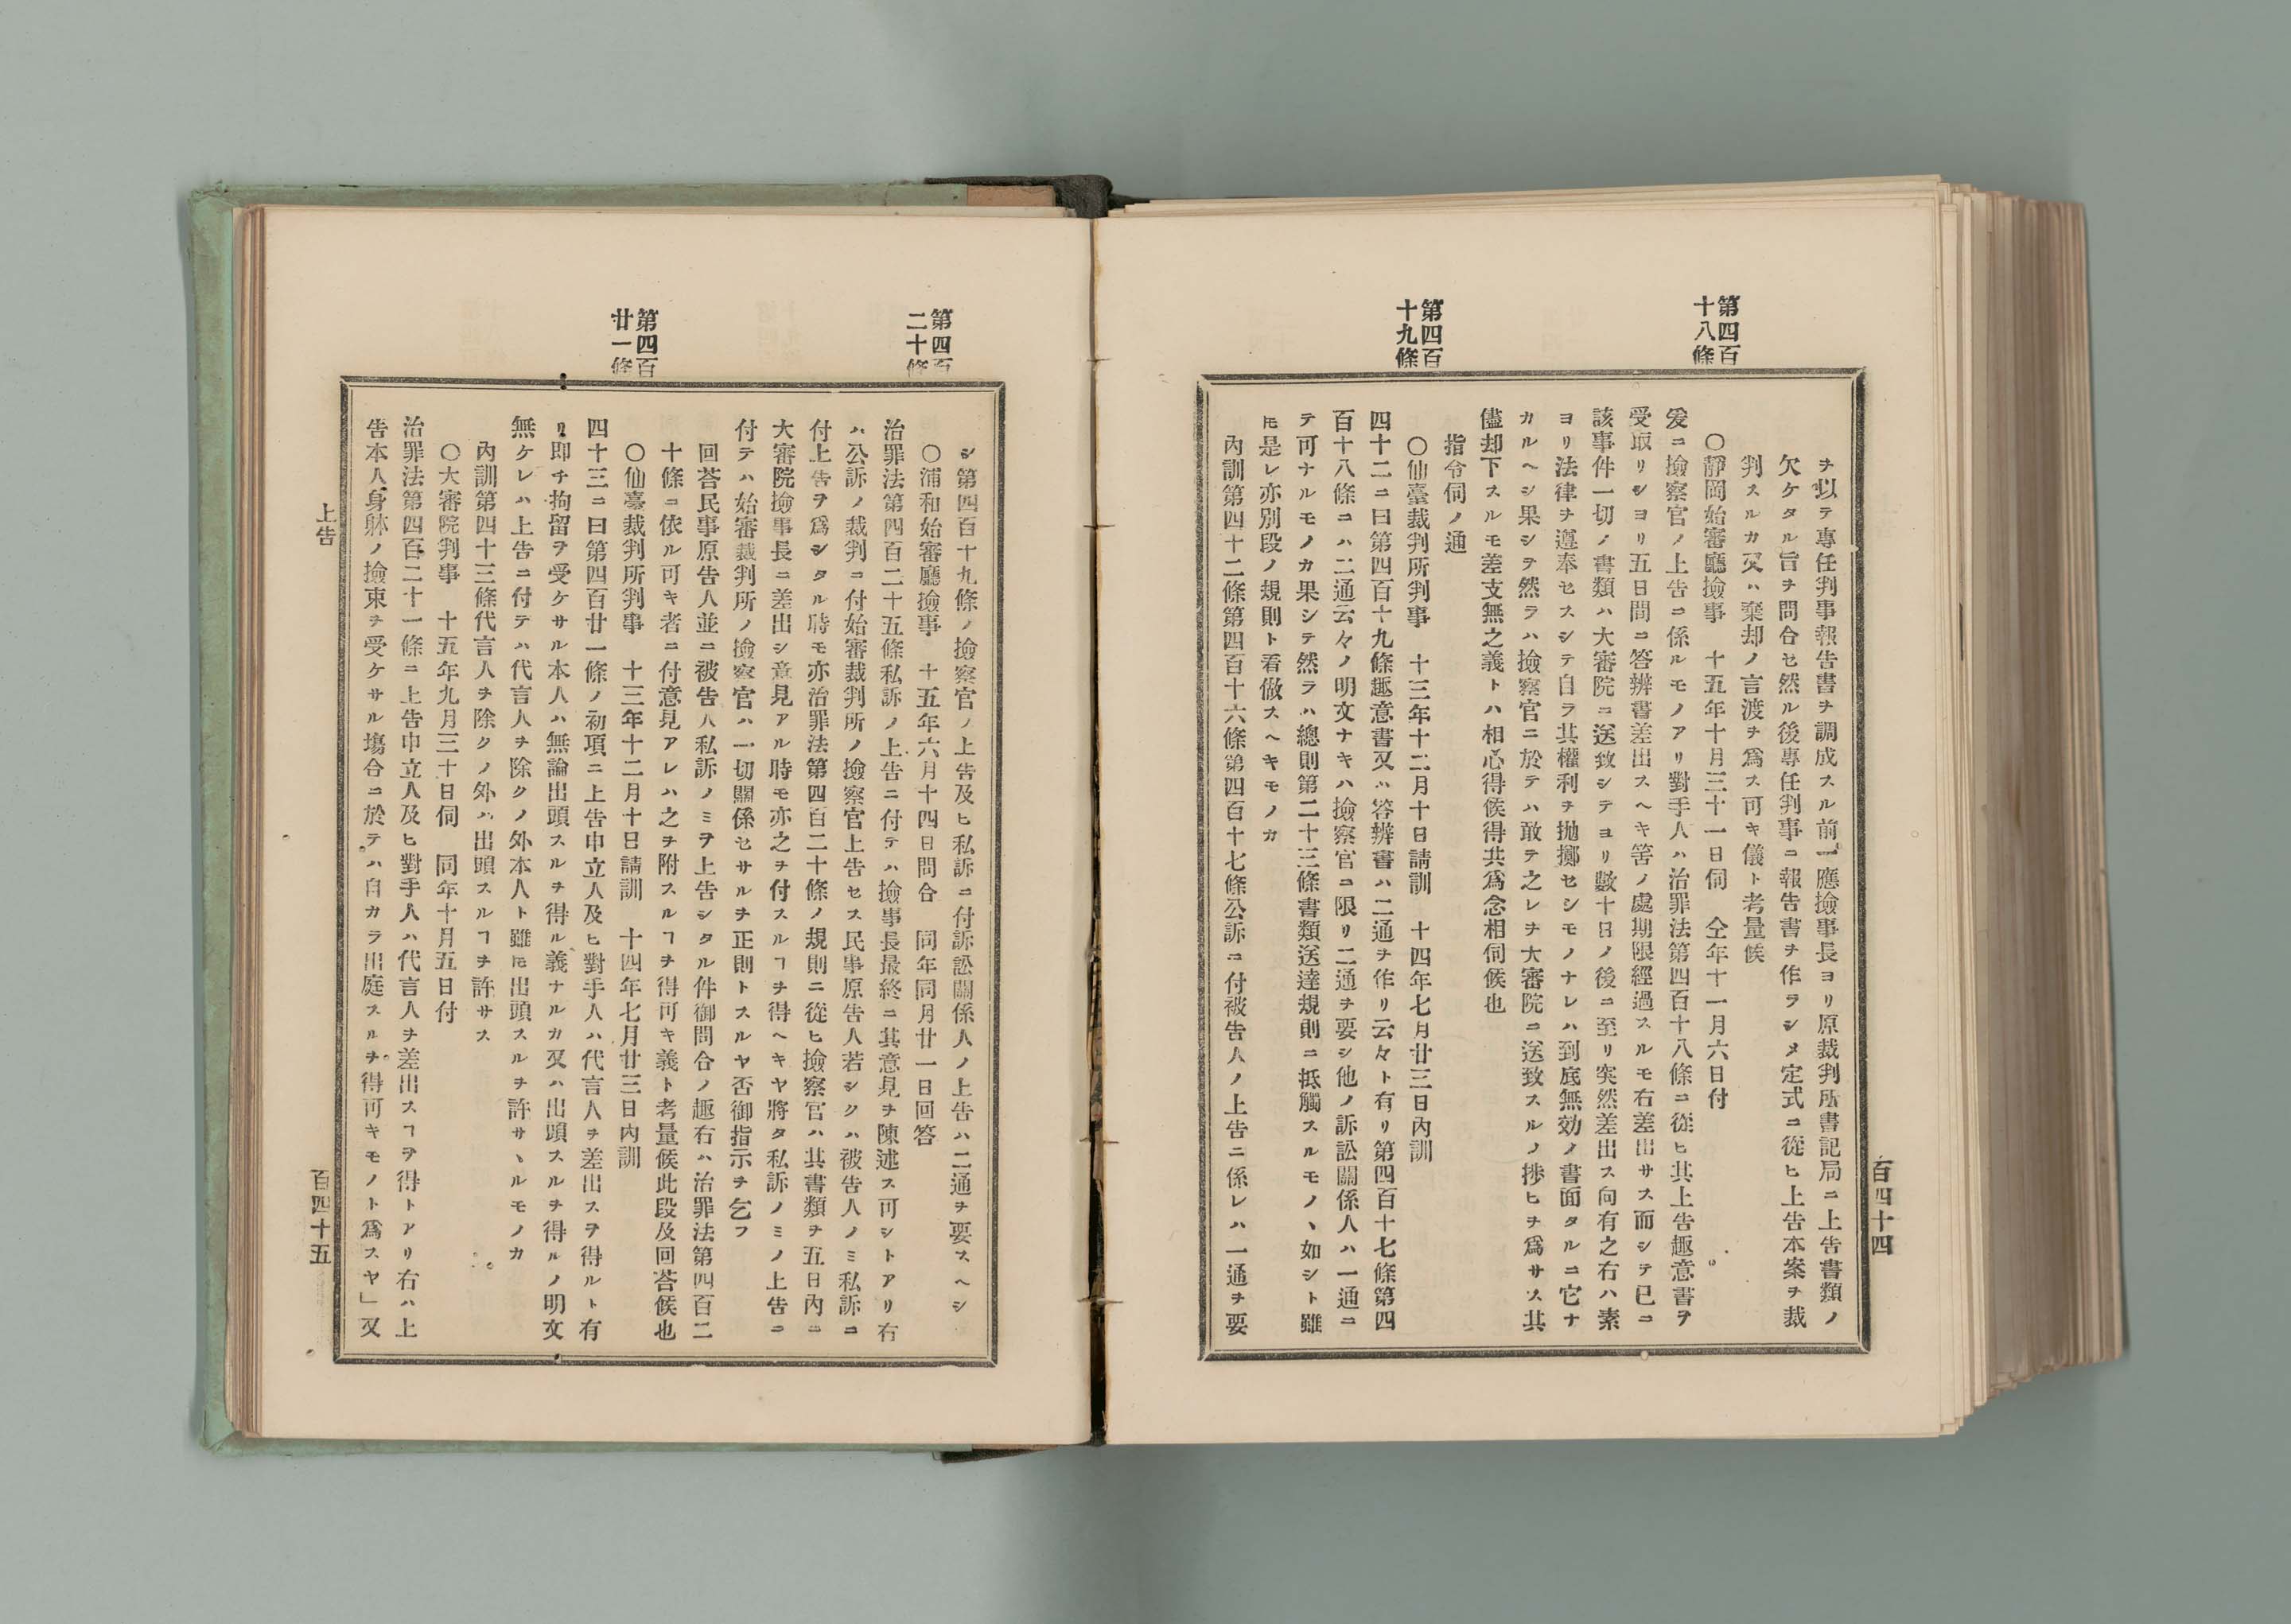 第四百
十八條
第四百
十九條
ヲ以テ專任判事報告書ヲ調成スル前一應撿事長ヨリ原裁判所書記局ニ上告書類ノ
欠ケタル旨ヲ問合セ然ル後專任判事ニ報告書ヲ作ラシメ定式ニ從ヒ上告本案ヲ裁
判スルカ又ハ棄却ノ言渡ヲ爲ス可キ儀ト考量候
〇靜岡始審廳撿事　十五年十月三十一日伺　仝年十一月六日付
爰ニ撿察官ノ上告ニ係ルモノアリ對手人ハ治罪法第四百十八條ニ從ヒ其上告趣意書ヲ
受取リシヨリ五日間ニ答辨書差出スヘキ筈ノ處期限經過スルモ右差出サス而シテ已ニ
該事件一切ノ書類ハ大審院ニ送致シテヨリ數十日ノ後ニ至リ突然差出ス向有之右ハ素
ヨリ法律ヲ遵奉セスシテ自ラ其權利ヲ抛擲セシモノナレハ到底無効ノ書面タルニ它ナ
カルヘシ果シテ然ラハ撿察官ニ於テハ敢テ之レヲ大審院ニ送致スルノ捗ヒヲ爲サス其
儘却下スルモ差支無之義トハ相心得候得共爲念相伺候也
指令伺ノ通
〇仙臺裁判所判事　十三年十二月十日請訓　十四年七月廿三日內訓
四十二ニ曰第四百十九條趣意書又ハ答辨書ハ二通ヲ作リ云々ト有リ第四百十七條第四
百十八條ニハ二通云々ノ明文ナキハ撿察官ニ限リ二通ヲ要シ他ノ訴訟關係人ハ一通ニ
テ可ナルモノカ果シテ然ラハ總則第二十三條書類送達規則ニ抵觸スルモノヽ如シト雖
𪜈是レ亦別段ノ規則ト看做スヘキモノカ
內訓第四十二條第四百十六條第四百十七條公訴ニ付被告人ノ上告ニ係レハ一通ヲ要
百四十四
第四百
二十條
第四百
廿一條
シ第四百十九條ノ撿察官ノ上告及ヒ私訴ニ付訴訟關係人ノ上告ハ二通ヲ要スヘシ
〇浦和始審廳撿事　十五年六月十四日問合　同年同月廿一日回答
治罪法第四百二十五條私訴ノ上告ニ付テハ撿事長最終ニ其意見ヲ陳述ス可シトアリ右
ハ公訴ノ裁判ニ付始審裁判所ノ撿察官上告セス民事原告人若シクハ被告人ノミ私訴ニ
付上告ヲ爲シタル時モ亦治罪法第四百二十條ノ規則ニ從ヒ撿察官ハ其書類ヲ五日內ニ
大審院撿事長ニ差出シ意見アル時モ亦之ヲ付スルヿヲ得ヘキヤ將タ私訴ノミノ上告ニ
付テハ始審裁判所ノ撿察官ハ一切關係セサルヲ正則トスルヤ否御指示ヲ乞フ
回荅民事原告人並ニ被告人私訴ノミヲ上告シタル件御問合ノ趣右ハ治罪法第四百二
十條ニ依ル可キ者ニ付意見アレハ之ヲ附スルヿヲ得可キ義ト考量候此段及回荅候也
〇仙臺裁判所判事　十三年十二月十日請訓　十四年七月廿三日內訓
四十三ニ曰第四百廿一條ノ初項ニ上告申立人及ヒ對手人ハ代言人ヲ差出スヲ得ルト有
リ即チ拘留ヲ受ケサル本人ハ無論出頭スルヲ得ル義ナルカ又ハ出頭スルヲ得ルノ明文
無ケレハ上告ニ付テハ代言人ヲ除クノ外本人ト雖𪜈出頭スルヲ許サヽルモノカ
內訓第四十三條代言人ヲ除クノ外ハ出頭スルヿヲ許サス
〇大審院判事　十五年九月三十日伺　同年十月五日付
治罪法第四百二十一條ニ上告申立人及ヒ對手人ハ代言人ヲ差出スヿヲ得トアリ右ハ上
告本人身躰ノ撿束ヲ受ケサル塲合ニ於テハ自カラ出庭スルヲ得可キモノト爲スヤ」又
上告
百四十五